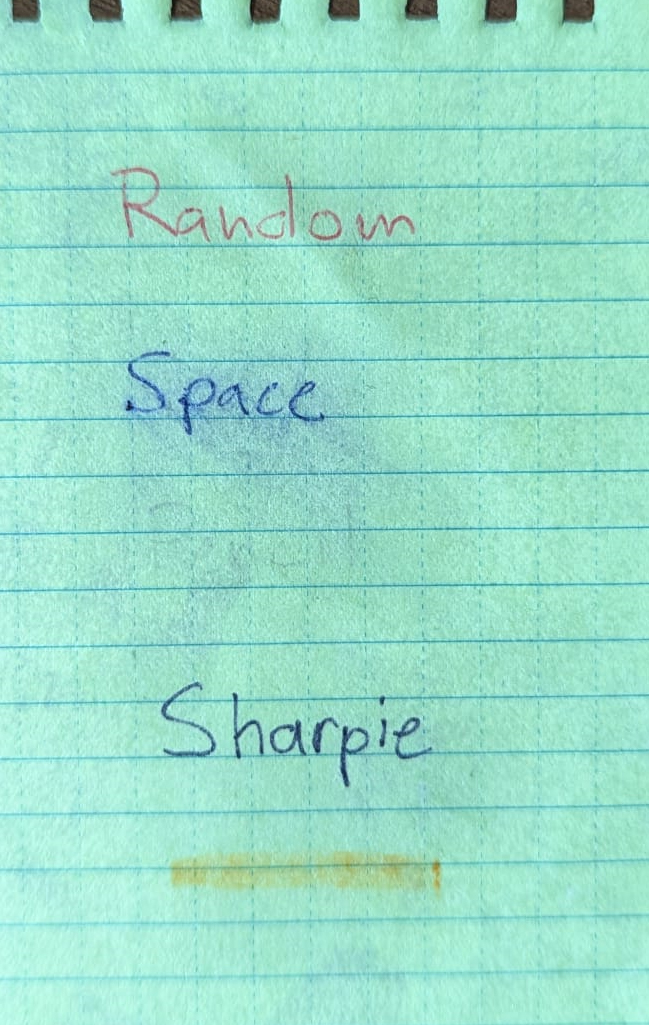 Random
Space
Sharpie